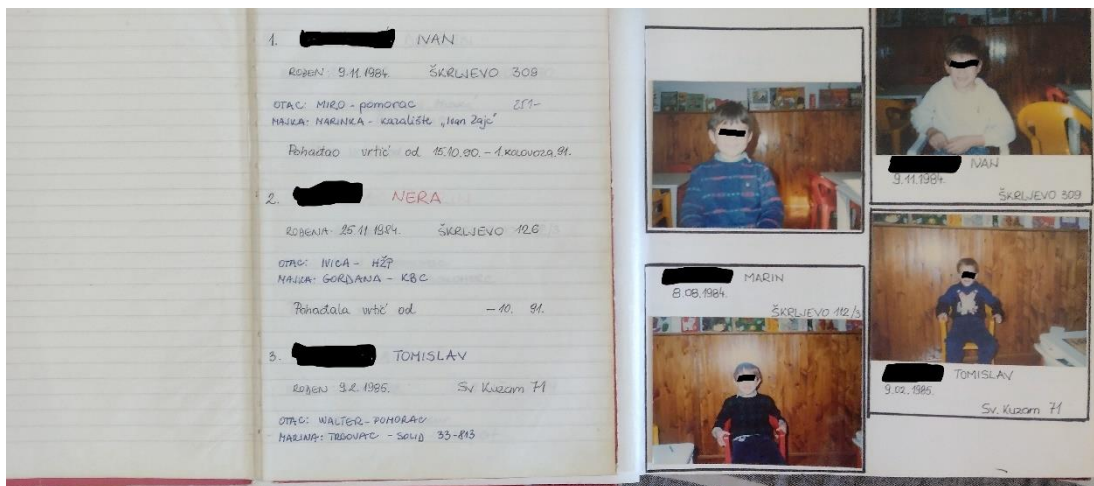 1. IVAN
ROĐEN: 9.11.1984. ŠKRLJEVO 309
OTAC: MIRO - pomorac 251-
MAJKA: MARINKA - kazalište „Ivan Zajc"
Pohađao vrtić od 15.10.90. - 1.kolovoza.91.
2. NERA
ROĐENA: 25.11.1984. ŠKRLJEVO 126
OTAC: IVICA - HŽP
MAJKA: GORDANA - KBC
Pohađala vrtić od - 10. 91.
3. TOMISLAV
ROĐEN 9.2.1985. Sv. Kuzam 71
OTAC: WALTER - POMORAC
MARINA: TRGOVAC - SOLID 33-813
IVAN
9.11.1984.
ŠKRLJEVO 309
MARIN
8.08.1984.
ŠKRLJEVO 112/3
TOMISLAV
9.02.1985.
Sv. Kuzam 71